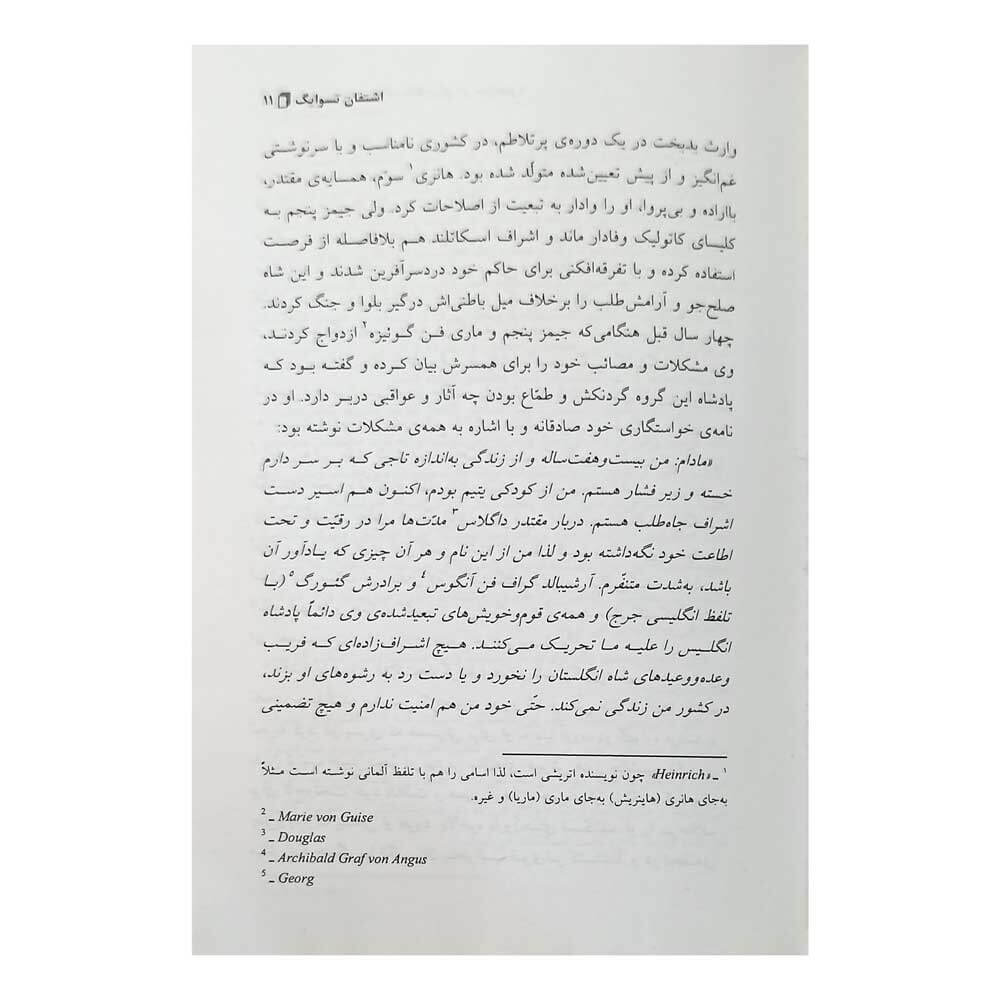 اشتفان تسوایگ ۱۱
وارث بدبخت در یک دوره‌ی پرتلاطم، در کشوری نامناسب و با سرنوشتی
غم‌انگیز و از پیش تعیین‌شده متولّد شده بود. هانری۱ سوّم، همسایه‌ی مقتدر،
بااراده و بی‌پروا، او را وادار به تبعیت از اصلاحات کرد. ولی جیمز پنجم به
کلیسای کاتولیک وفادار ماند و اشراف اسکاتلند هم بلافاصله از فرصت
استفاده کرده و با تفرقه‌افکنی برای حاکم خود دردسرآفرین شدند و این شاه
صلح‌جو و آرامش‌طلب را برخلاف میل باطنی‌اش درگیر بلوا و جنگ کردند.
چهار سال قبل هنگامی‌که جیمز پنجم و ماری فن گوئیزه۲ ازدواج کردند،
وی مشکلات و مصائب خود را برای همسرش بیان کرده و گفته بود که
پادشاه این گروه گردنکش و طمّاع بودن چه آثار و عواقبی دربر دارد. او در
نامه‌ی خواستگاری خود صادقانه و با اشاره به همه‌ی مشکلات نوشته بود:
«مادام: من بیست‌وهفت‌ساله و از زندگی به‌اندازه تاجی که بر سر دارم
خسته و زیر فشار هستم. من از کودکی یتیم بودم، اکنون هم اسیر دست
اشراف جاه‌طلب هستم. دربار مقتدر داگلاس۳ مدّت‌ها مرا در رقیّت و تحت
اطاعت خود نگه‌داشته بود و لذا من از این نام و هر آن چیزی که یادآور آن
باشد، به‌شدت متنفّرم. آرشیبالد گراف فن آنگوس۴ و برادرش گئورگ۵ (با
تلفظ انگلیسی جرج) و همه‌ی قوم‌وخویش‌های تبعیدشده‌ی وی دائماً پادشاه
انگلیس را علیه ما تحریک می‌کنند. هیچ اشراف‌زاده‌ای که فریب
وعده‌ووعیدهای شاه انگلستان را نخورد و یا دست رد به رشوه‌های او بزند،
در کشور من زندگی نمی‌کند. حتّی خود من هم امنیت ندارم و هیچ تضمینی
۱ ـ «Heinrich» چون نویسنده اتریشی است، لذا اسامی را هم با تلفظ آلمانی نوشته است مثلاً
به‌جای هانری (هاینریش) به‌جای ماری (ماریا) و غیره.
2 ـ Marie von Guise
3 ـ Douglas
4 ـ Archibald Graf von Angus
5 ـ Georg